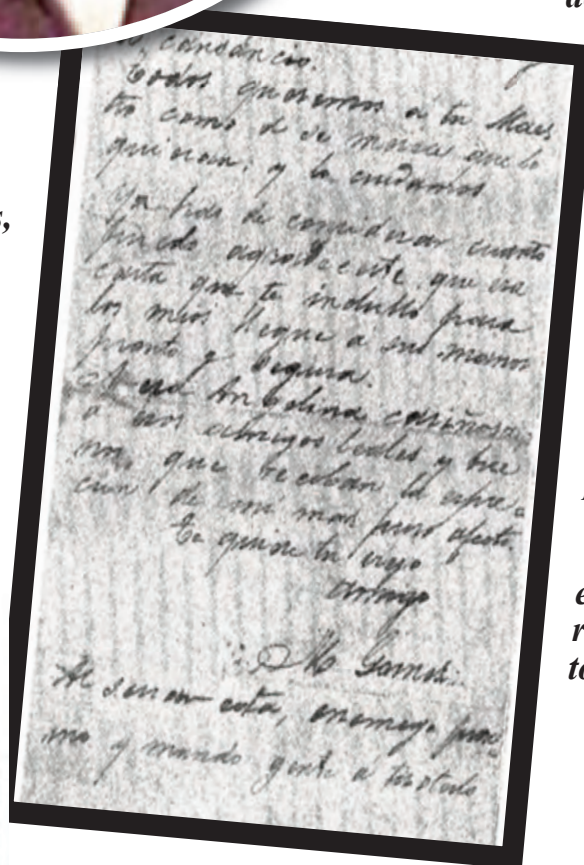 cansancio.
Todos queremos a tu Maes
tro como él se merece que lo
quieran; y lo cuidamos
Ya has de considerar cuanto
puedo agradecerte que esa
carta que te incluyo para
los míos llegue a sus manos
pronto y segura.
cariñosa
a sus amigos leales y bue
nos, que reciban la expre-
ción de mi más puro afecto.
te quiere tu viejo
amigo
M Gomez.
Al cerrar esta, enemigo
y mando gente a